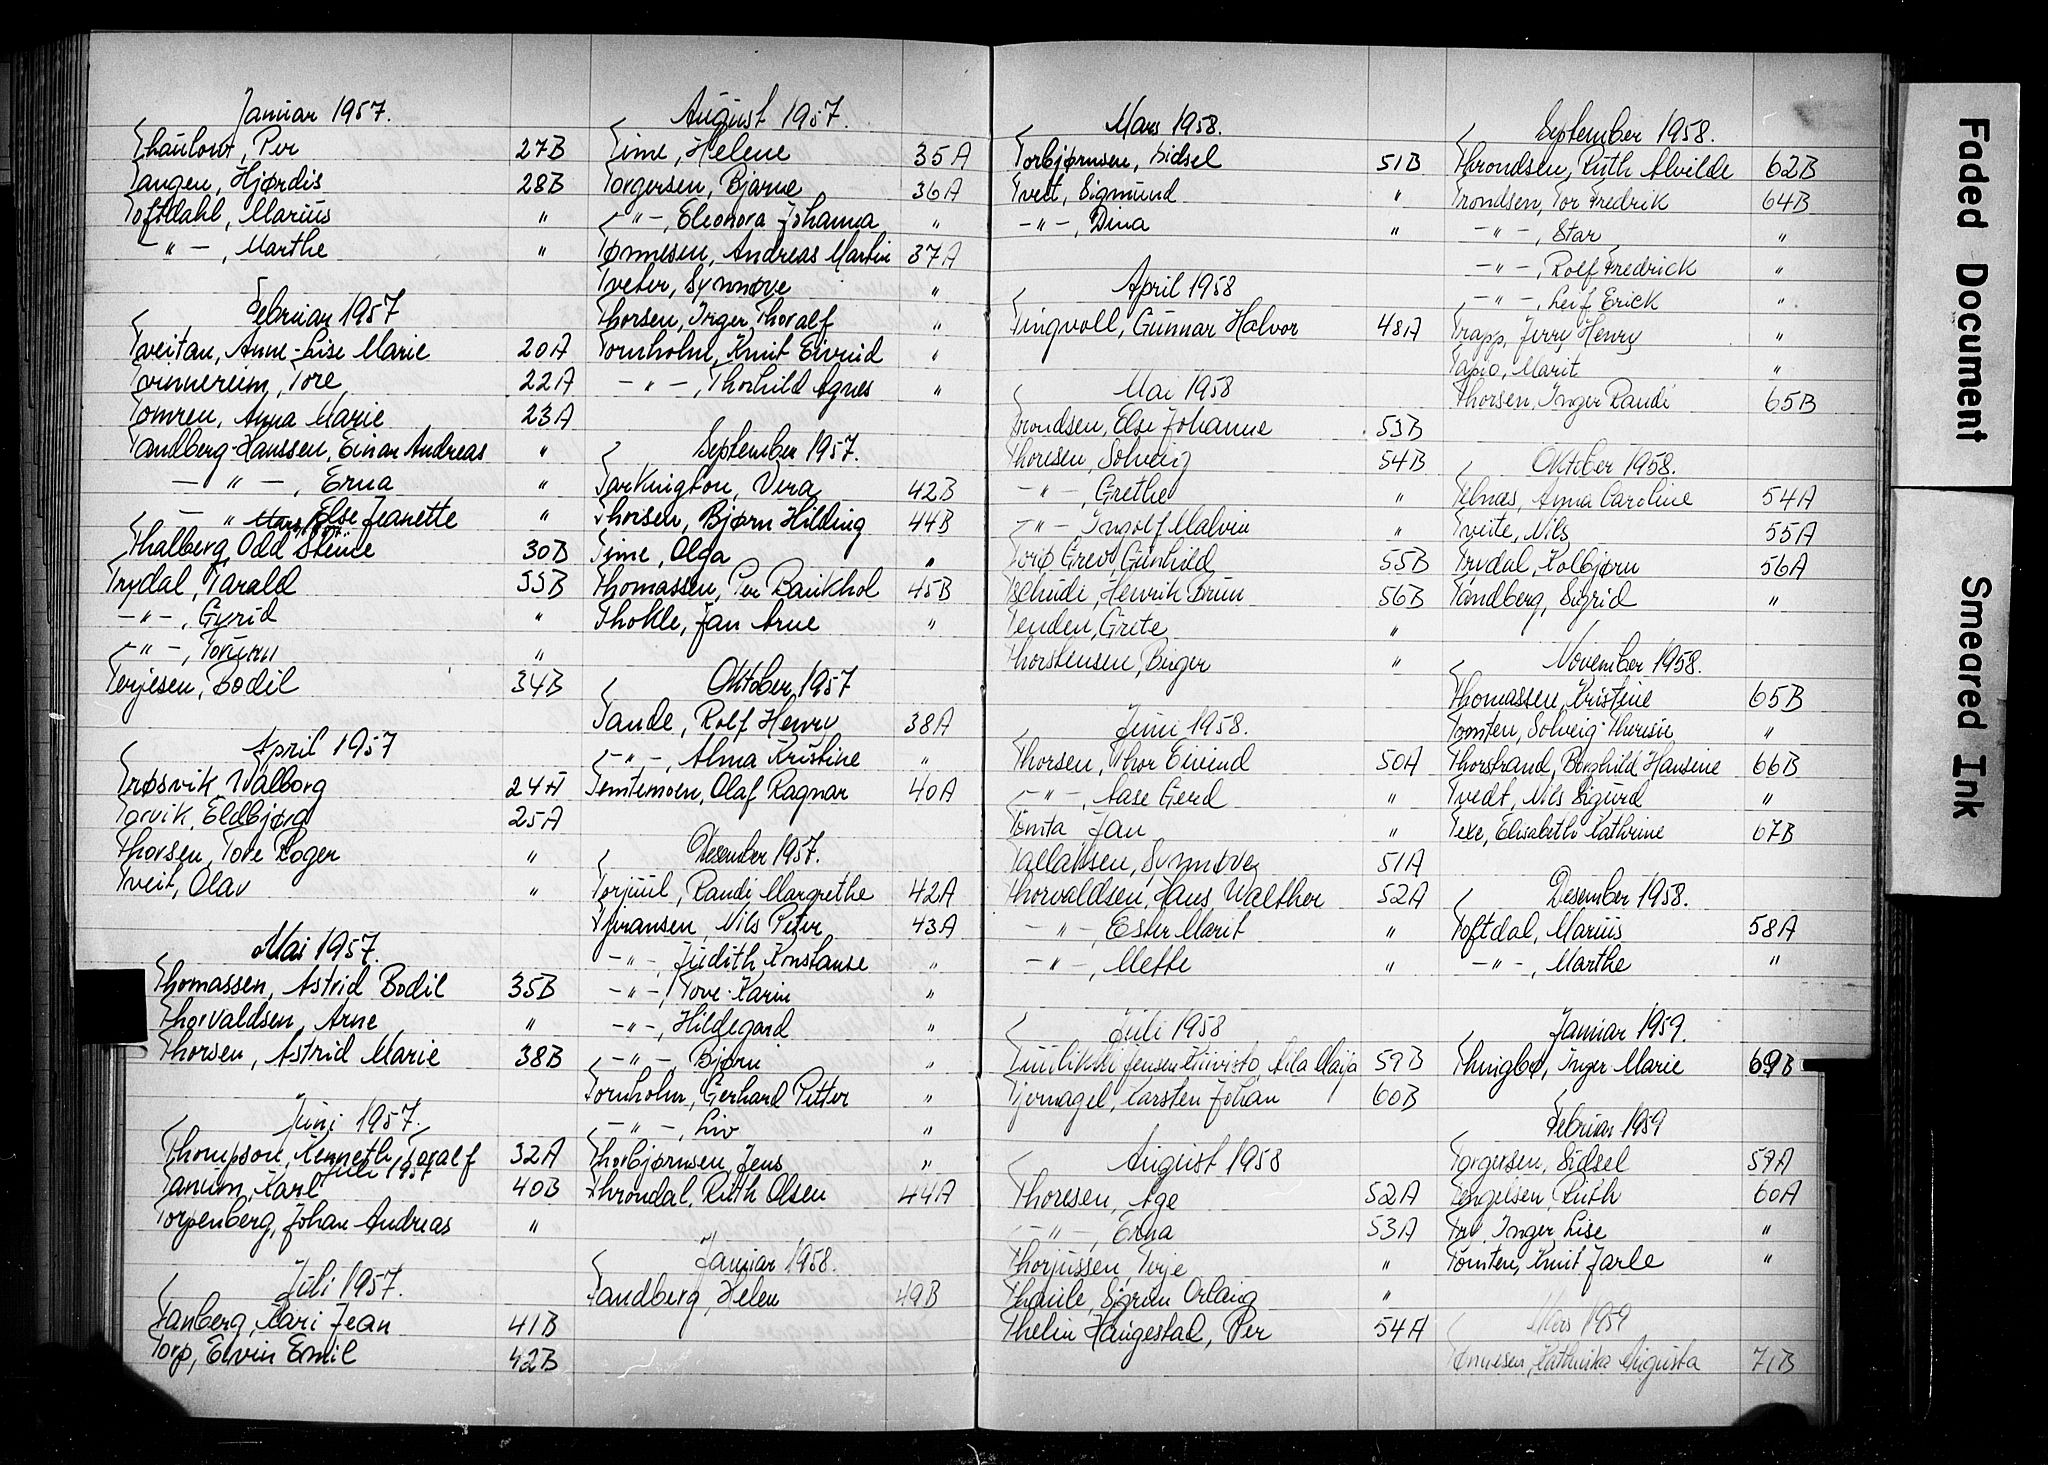 Januar 1957.
Thaulow, Per 27B
Tangen, Hjørdis 28B
Toftdahl, Marius "
-"-, Marthe "
Februar 1957
Tveitan, Anne-Lise Marie 20A
Tvinnereim, Tore 22A
Tomren, Anna Marie 23A
Tandberg-Hanssen, Einar Andreas "
-"-, Erna "
-"- Else Jeanette "
Mars 1957
Thalberg, Odd Steine 30B
Trydal, Tarald 33B
-"-, Gyrid "
-"-, Torunn "
Terjesen, Bodil 34B
April 1957
Trøsvik, Valborg 24A
Torvik, Eldbjørg 25A
Thorsen, Tore Roger "
Tveit, Olav "
Mai 1957.
Thomassen, Astrid Bodil 35B
Thorvaldsen, Arne "
Thorsen, Astrid Marie 38B
Juni 1957.
Thompson, Kenneth Toralf 32A
Juli 1957
Tanum, Karl 40B
Torpenberg, Johan Andreas "
Juli 1957.
Tanberg, Kari Jean 41B
Torp, Ervin Emil 42B
August 1957.
Time, Helene 35A
Torgersen, Bjarne 36A
-"-, Eleonora Johanna "
Tønnesen, Andreas Martin 37A
Tveter, Synnøve "
Thorsen, Inger Thoralf "
Tornholm, Knut Eivind "
-"-, Thorhild Agnes "
September 1957.
Tarkington, Vera 42B
Thorsen, Bjørn Hilding 44B
Time, Olga "
Thomassen, Per Bankhol 45B
Thohle, Jan Arne "
Oktober 1957
Tande, Rolf Henry 38A
-"-, Alma Kristine "
Temtemoen, Olaf Ragnar 40A
Desember 1957.
Torjuul, Randi Margrethe 42A
Tjøransen, Nils Peter 43A
-"-, Judith Konstanse "
-"-, Tove-Karin "
-"-, Hildegard "
-"-, Bjørn "
Tornholm, Gerhard Petter "
-"-, Liv "
Thorbjørnsen, Jens "
Throndal, Ruth Olsen 44A
Januar 1958.
Tandberg, Helen 49B
Mars 1958.
Torbjørnsen, Sidsel 51B
Tveit, Sigmund "
-"-, Dina "
April 1958
Tingvoll, Gunnar Halvor 48A
Mai 1958
Trondsen, Else Johanne 53B
Thoresen, Solveig 54B
-"-, Grethe "
-"- Ingolf Malvin "
Torø Grevo, Gunhild 55B
Tschudi, Henrik Brun 56B
Tenden, Grete "
Thorstensen, Birger "
Juni 1958.
Thorsen, Thor Eivind 50A
-"-, Aase Gerd "
Tomta Jan "
Tallaksen, Synnøve 51A
Thorvaldsen, Hans Walther 52A
-"-, Ester Marit "
-"-, Mette "
Juli 1958
Tuulikki Jensen, Aila Maija 59B
Tjernagel, Karsten Johan 60B
August 1958
Thoresen, Åge 52A
-"-, Erna 53A
Thorjussen, Terje "
Thaule, Sigrun Orlaug "
Thelin Haugestad, Per 54A
September 1958.
Throndsen, Ruth Alvilde 62B
Trondsen, Tor Fredrik 64B
-"-, Star "
-"-, Rolf Fredrick "
-"-, Leif Erick "
Trapp, Jerry Henry "
Tapio, Marit "
Thorsen, Inger Randi 65B
Oktober 1958.
Tilnæs, Anna Caroline 54A
Tveite, Nils 55A
Trydal, Kolbjørn 56A
Tandberg, Sigrid "
November 1958.
Thomassen, Kristine 65B
Tomten, Solveig Therese "
Thorstrand, Borghild Hansine 66B
Tvedt, Nils Sigurd "
Texe, Elisabeth Kathrine 67B
Desember 1958.
Toftdal, Marius 58A
-"-, Marthe "
Januar 1959.
Thingbø, Inger Marie 69B
Februar 1959
Torgersen, Sidsel 59A
Tengelsen, Ruth 60A
Try, Inger Lise "
Tomten, Knut Jarle "
Mars 1959
Tønnesen, Kathinka Augusta 71B
Faded Document
Smeared Ink